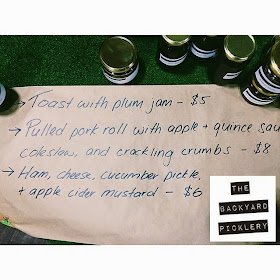 → Toast with plum jam – $5
→ Pulled pork roll with apple + quince sau
coleslaw, and crackling crumbs – $8
→ Ham, cheese, cucumber pickle,
+ apple cider mustard – $6
THE
BACKYARD
PICKLERY